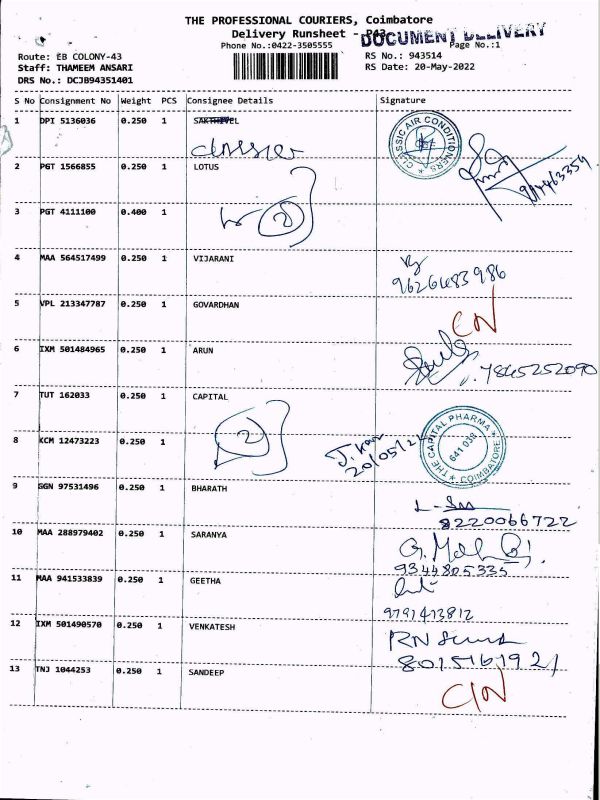 THE PROFESSIONAL COURIERS, Coimbatore
Delivery Runsheet - P43
DOCUMENT DELIVERY
Phone No.:0422-3505555
Page No.:1
Route: EB COLONY-43
RS No.: 943514
Staff: THAMEEM ANSARI
RS Date: 20-May-2022
DRS No.: DCJB94351401
S No Consignment No Weight PCS Consignee Details Signature
1 DPI 5136036 0.250 1 SAKTHIVEL
classier
CLASSIC AIR CONDITIONERS
CBE
2 PGT 1566855 0.250 1 LOTUS
3 PGT 4111100 0.400 1
2
4 MAA 564517499 0.250 1 VIJARANI
9626483986
5 VPL 213347787 0.250 1 GOVARDHAN
C/N
6 IXM 501484965 0.250 1 ARUN
7845252090
7 TUT 162033 0.250 1 CAPITAL
THE CAPITAL PHARMA
641 038
COIMBATORE
8 KCM 12473223 0.250 1
2
20/05/22
9 GGN 97531496 0.250 1 BHARATH
8220066722
10 MAA 288979402 0.250 1 SARANYA
9344805335
11 MAA 941533839 0.250 1 GEETHA
9791473812
12 IXM 501490570 0.250 1 VENKATESH
8015161921
13 TNJ 1044253 0.250 1 SANDEEP
C/N